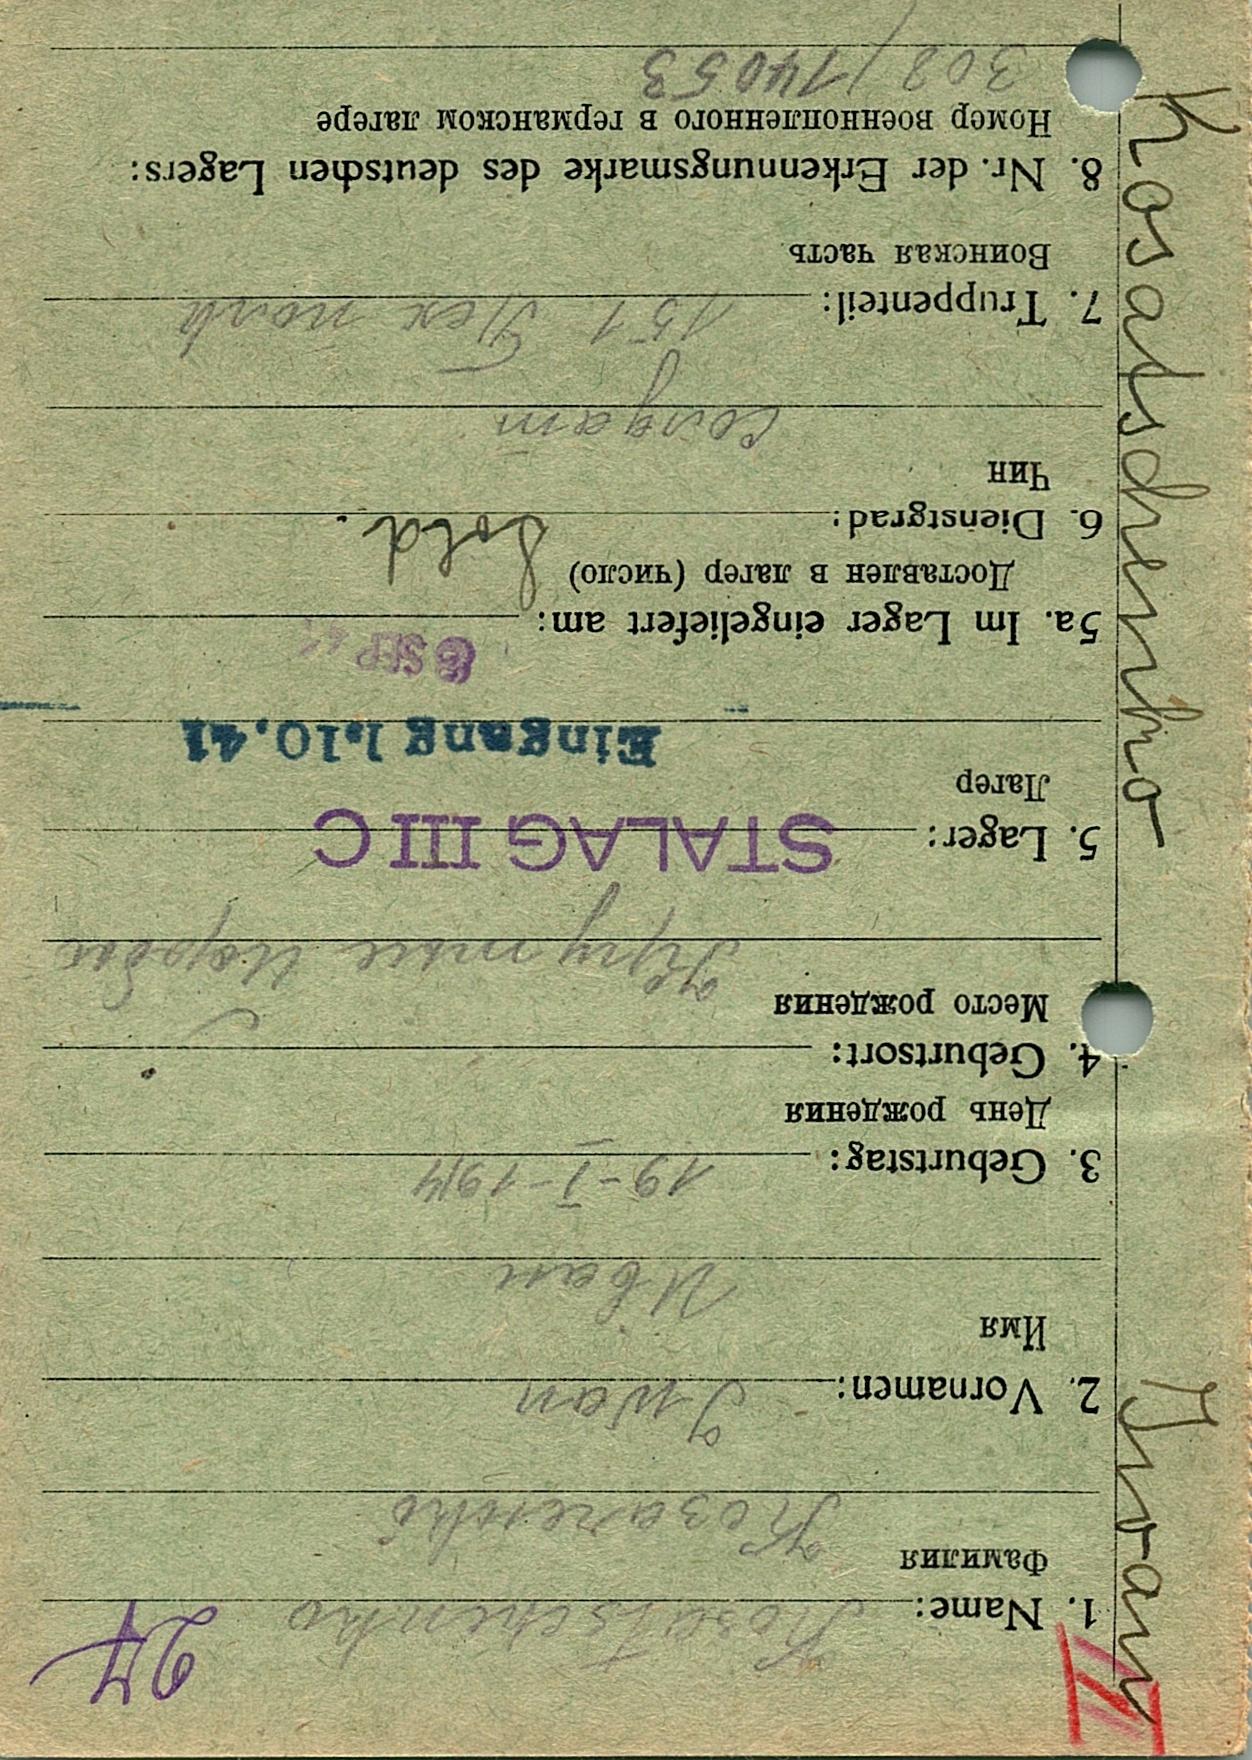 27
II
Kosatschenko Iwan
1. Name: Kosatschenko
Фамилия
Козаченко
2. Vornamen: Iwan
Имя
Иван
3. Geburtstag: 19-I-1914
День рождения
4. Geburtsort:
Место рождения
5. Lager: STALAG III C
Лагер
Eingang 1.10.41
5a. Im Lager eingeliefert am: 6 SEP 41
Доставлен в лагер (число)
6. Dienstgrad: Sold.
Чин
солдат
7. Truppenteil: 151 полк
Воинская часть
8. Nr. der Erkennungsmarke des deutschen Lagers:
Номер военнопленного в германском лагере
302/14053